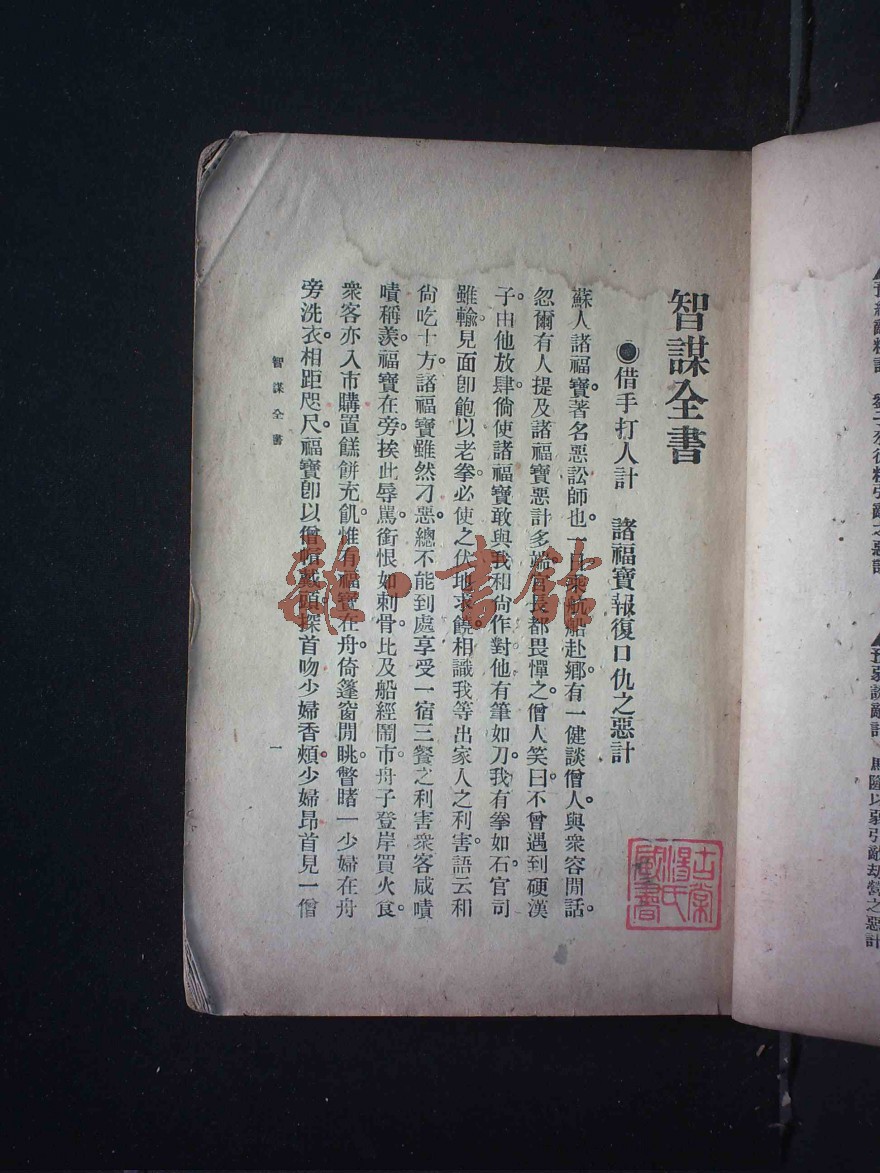 智謀全書
●借手打人計　諸福寶報復口仇之惡計
蘇人諸福寶。著名惡訟師也。一日乘航船赴鄉。有一健談僧人。與衆容閒話。
忽爾有人提及諸福寶惡計多端。官長都畏憚之。僧人笑曰。不曾遇到硬漢
子。由他放肆。倘使諸福寶敢與我和尙作對。他有筆如刀。我有拳如石。官司
雖輸。見面卽飽以老拳。必使之伏地求饒。相識我等出家人之利害。語云。和
尙吃十方。諸福寶雖然刁惡。總不能到處享受一宿三餐之利害。衆客咸嘖
嘖稱羨。福寶在旁挨此辱罵。銜恨如刺骨。比及船經鬧市。舟子登岸買火食。
衆客亦入市購置餻餅充飢。惟有福寶在舟。倚篷窗閒眺。瞥睹一少婦在舟
旁洗衣。相距咫尺。福寶卽以僧帽戴頭。探首吻少婦香頰。少婦昂首見一僧
智謀全書
一
雜·書館